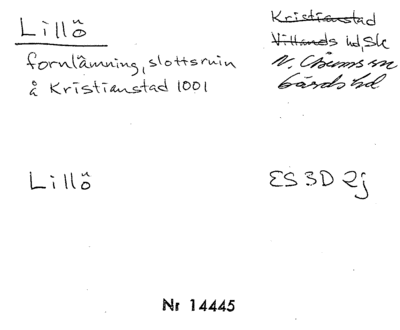 Lillö
Kristianstad
Villands hd, Sk
N. Åsums sn
Gärds hd
fornlämning, slottsruin
å Kristianstad 1001
Lillö
ES 3D 2j
Nr 14445